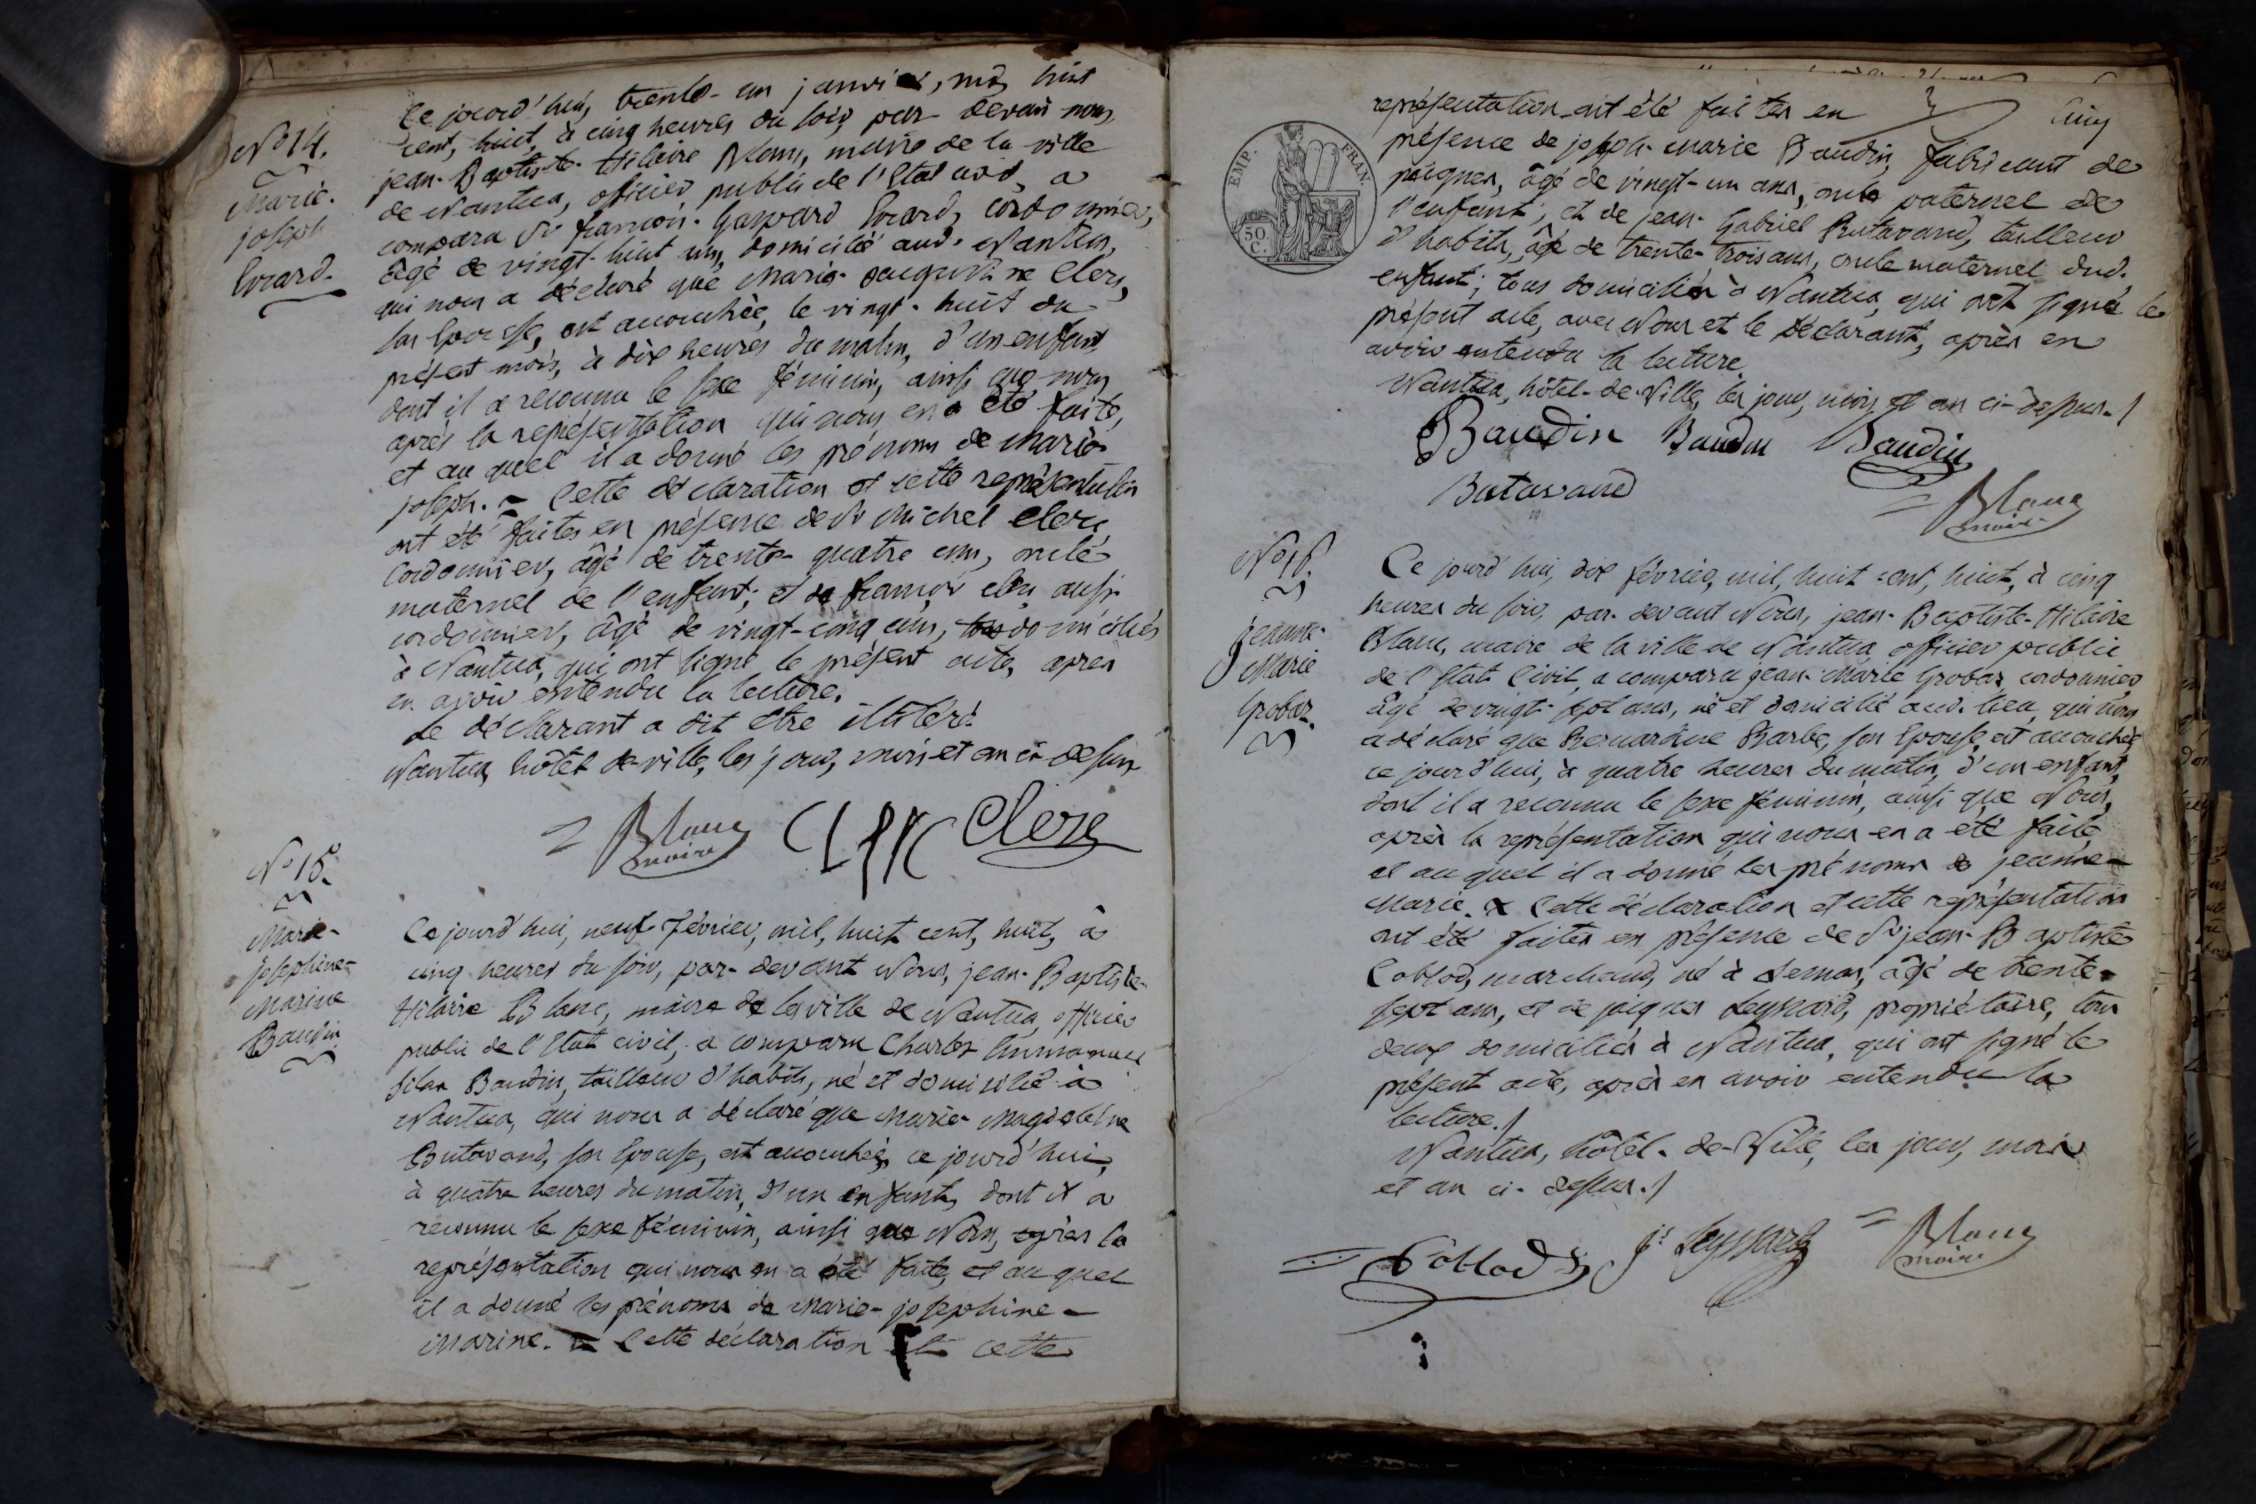 N.º 14.
Marie-
joseph
Evrard.
Ce jourd'hui, trente-un janvier, mil huit
cent, huit, à cinq heures du soir, par-devant nous,
jean-Baptiste-Hilaire Blanc, maire de la ville
de Nantua, officier public de l'Etat civil, a
comparu Sr. françois-Gaspard Evrard, cordonnier,
âgé de vingt-huit ans, domicilié aud. Nantua,
qui nous a déclaré que Marie- Clerc,
son Epouse, est accouchée, le vingt-huit du
présent mois, à dix heures du matin, d'un enfant
dont il a reconnu le sexe féminin, ainsi que nous
après la représentation qui nous en a été faite,
et au quel il a donné les prénoms de Marie-
joseph. Cette déclaration et cette représentation
ont été faites en présence de Sr. Michel Clerc,
Cordonnier, âgé de trente-quatre ans, oncle
maternel de l'enfant; et de françois Clerc, aussi
cordonnier, âgé de vingt-cinq ans, domiciliés
à Nantua, qui ont signé le présent acte, après
en avoir entendu la lecture.
Le déclarant a dit être illitéré.
Nantua, hôtel de-ville, les jour, mois et an ci-dessus
Blanc
maire
Clerc Clerc
N.º 15.
Marie-
josephine-
Marine
Baudin
Ce jourd'hui, neuf février, mil, huit cent, huit, à
cinq heures du soir, par-devant Nous, jean-Baptiste-
Hilaire Blanc, maire de la ville de Nantua, officier
public de l'Etat civil, a comparu Charles Emmanuel
Baudin, tailleur d'habits, né et domicilié à
Nantua, qui nous a déclaré que Marie-Magdeleine
Butavand, son Epouse, est accouchée, ce jourd'hui,
à quatre heures du matin, d'un enfant, dont il a
reconnu le sexe féminin, ainsi que Nous, après la
représentation qui nous en a été faite, et au quel
il a donné les prénoms de Marie-josephine-
Marine. Cette déclaration et cette
EMP. FRAN.
50
C.
Cinq
représentation ont été faites en
présence de joseph-Marie Baudin, fabricant de
peignes, âgé de vingt-un ans, oncle paternel de
l'enfant; et de jean-Gabriel Butavand, tailleur
d'habits, âgé de trente-trois ans, oncle maternel dud.
enfant; tous domiciliés à Nantua, qui ont signé le
présent acte, avec Nous et le Déclarant, après en
avoir entendu la lecture.
Nantua, hôtel-de-Ville, les jour, mois et an ci-dessus./
Baudin Baudin Baudin
Butavand
Blanc
maire
N.º 16.
Jeanne-
Marie
Grobas.
Ce jourd'hui, dix février, mil, huit cent, huit, à cinq
heures du soir, par-devant Nous, jean-Baptiste-Hilaire
Blanc, maire de la ville de Nantua, officier public
de l'Etat Civil, a comparu jean-Marie Grobas, cordonnier,
âgé de vingt-sept ans, né et domicilié aud. lieu, qui nous
a déclaré que Bernardine Barbe, son Epouse, est accouchée
ce jourd'hui, à quatre heures du matin, d'un enfant,
dont il a reconnu le sexe féminin, ainsi que Nous,
après la représentation qui nous en a été faite,
et au quel il a donné les prénoms de jeanne-
Marie. Cette déclaration et cette représentation
ont été faites en présence de Sr. jean-Baptiste
Coblod, marchand, né à âgé de trente-
sept ans, et de jacques Leyssard, propriétaire, tous
deux domiciliés à Nantua, qui ont signé le
présent acte, après en avoir entendu la
lecture./
Nantua, hôtel-de-Ville, les jour, mois
et an ci-dessus./
Coblod Jes Leyssard Blanc
maire